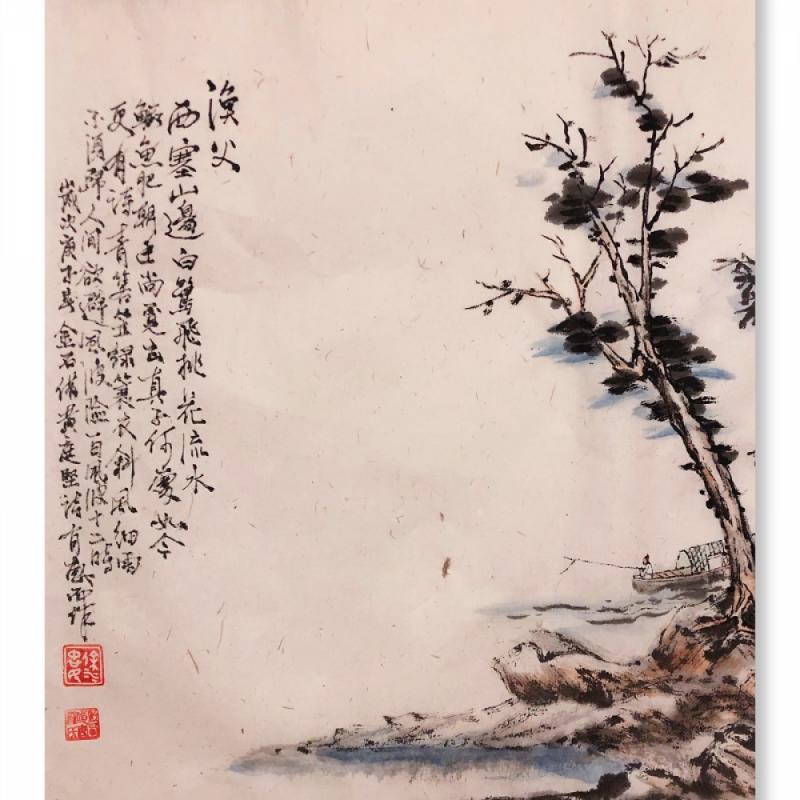 漁父
西塞山邊白鷺飛桃花流水
鱖魚肥朝廷尚覓玄真子何處如今
更有詩青箬笠綠蓑衣斜風細雨
不須歸人间欲避風波險一日風波十二時
歲次庚子金石借黃庭堅詩有感而作